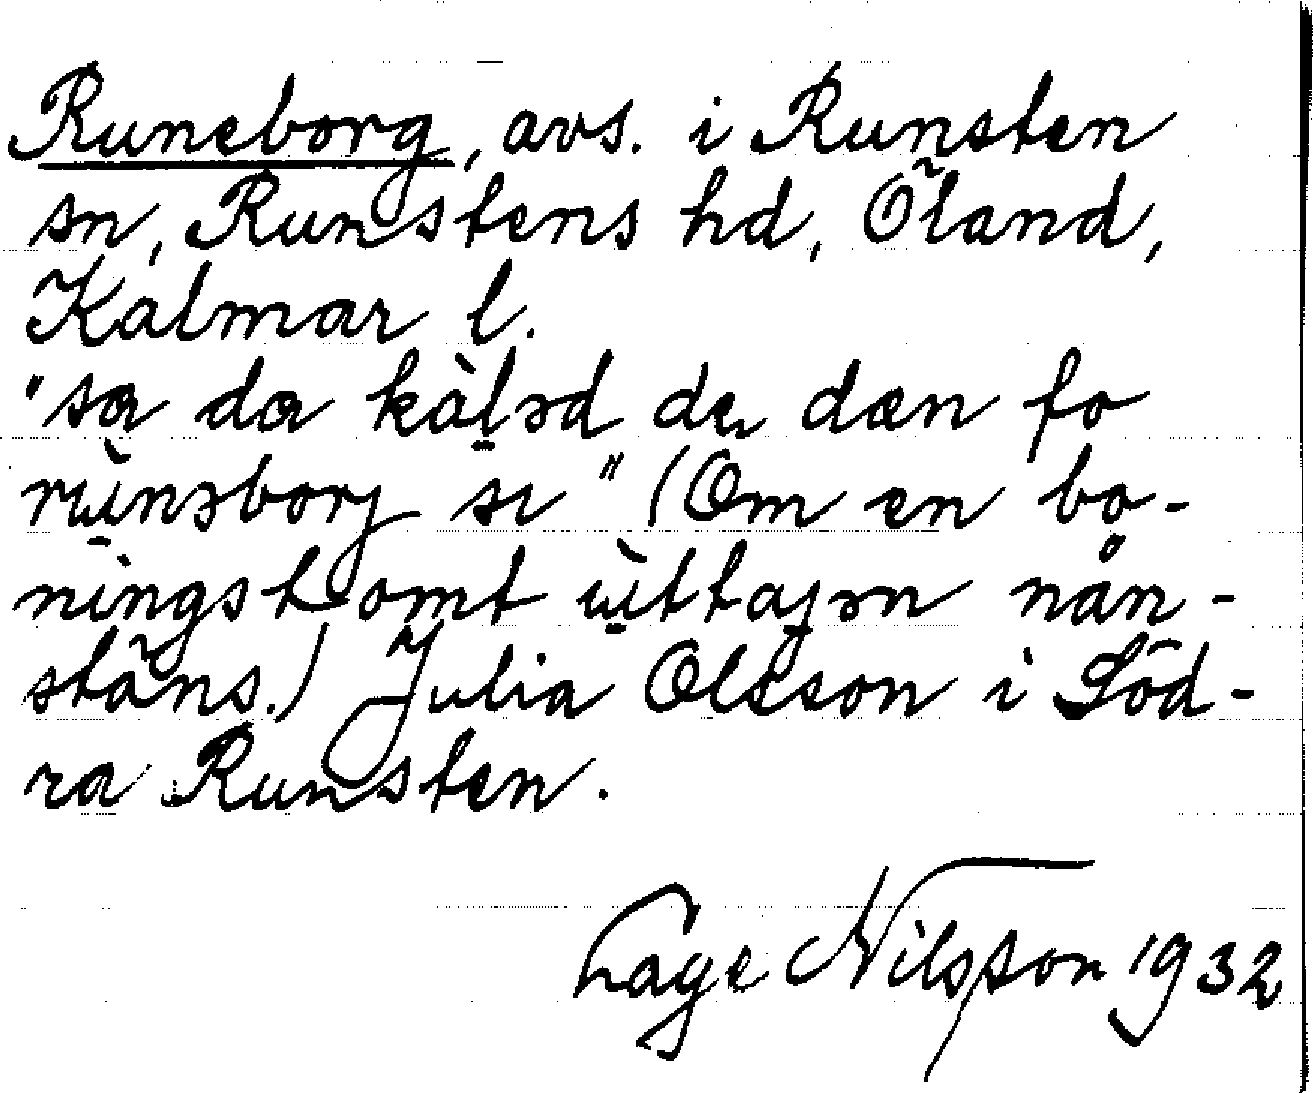 Runeborg, avs. i Runsten
sn, Runstens hd, Öland,
Kalmar l.
"sa da kàləd de dæn fo
rùnəborj sı" (Om en bo-
ningstomt ùttajən nån-
stäns.) Julia Olsson i Söd-
ra Runsten.
Lage Nilsson 1932